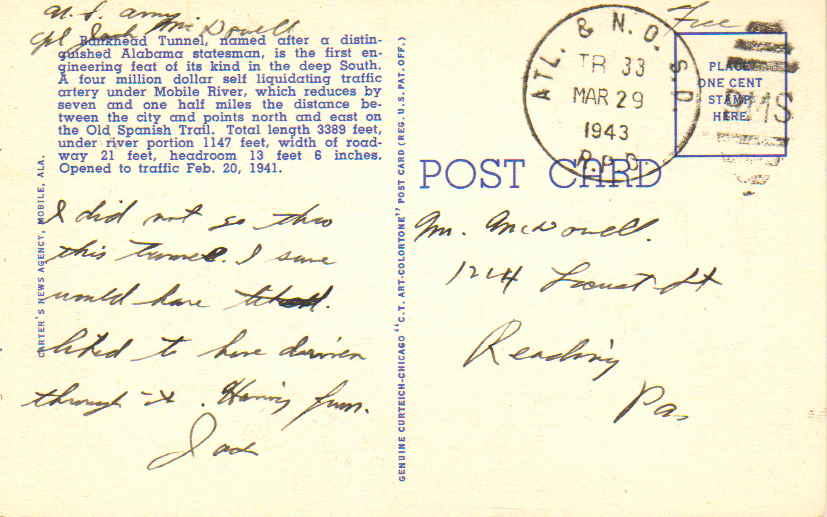 U.S. Army
Cpl Jack McDowell
Bankhead Tunnel, named after a distin-
guished Alabama statesman, is the first en-
gineering feat of its kind in the deep South.
A four million dollar self liquidating traffic
artery under Mobile River, which reduces by
seven and one half miles the distance be-
tween the city and points north and east on
the Old Spanish Trail. Total length 3389 feet,
under river portion 1147 feet, width of road-
way 21 feet, headroom 13 feet 6 inches.
Opened to traffic Feb. 20, 1941.
I did not go thro
this tunnel. I sure
would have
liked to have driven
through it. Having fun.
Jack
CARTER'S NEWS AGENCY, MOBILE, ALA.
GENUINE CURTEICH-CHICAGO "C.T. ART-COLORTONE" POST CARD (REG. U.S. PAT. OFF.)
Free
ATL. & N.O. S.D.
TR 33
MAR 29
1943
R.P.O.
RMS
PLACE
ONE CENT
STAMP
HERE
POST CARD
Mr. McDowell.
1214 Locust St
Reading
Pa.